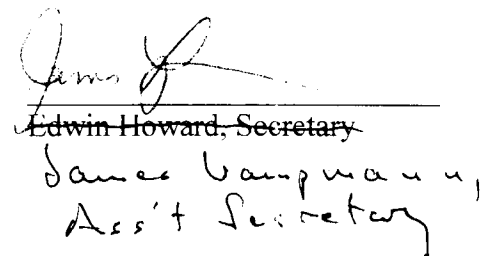 James
Edwin Howard, Secretary
James Vampmann,
Ass't Secretary